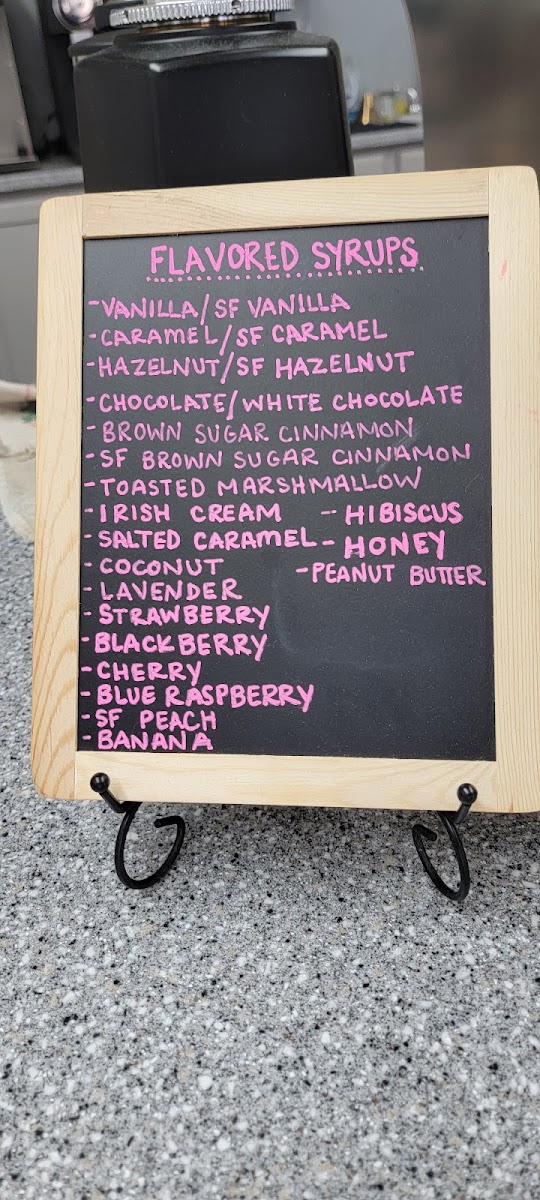 FLAVORED SYRUPS
-VANILLA/SF VANILLA
-CARAMEL/SF CARAMEL
-HAZELNUT/SF HAZELNUT
-CHOCOLATE/WHITE CHOCOLATE
-BROWN SUGAR CINNAMON
-SF BROWN SUGAR CINNAMON
-TOASTED MARSHMALLOW
-IRISH CREAM -HIBISCUS
-SALTED CARAMEL -HONEY
-COCONUT -PEANUT BUTTER
-LAVENDER
-STRAWBERRY
-BLACKBERRY
-CHERRY
-BLUE RASPBERRY
-SF PEACH
-BANANA